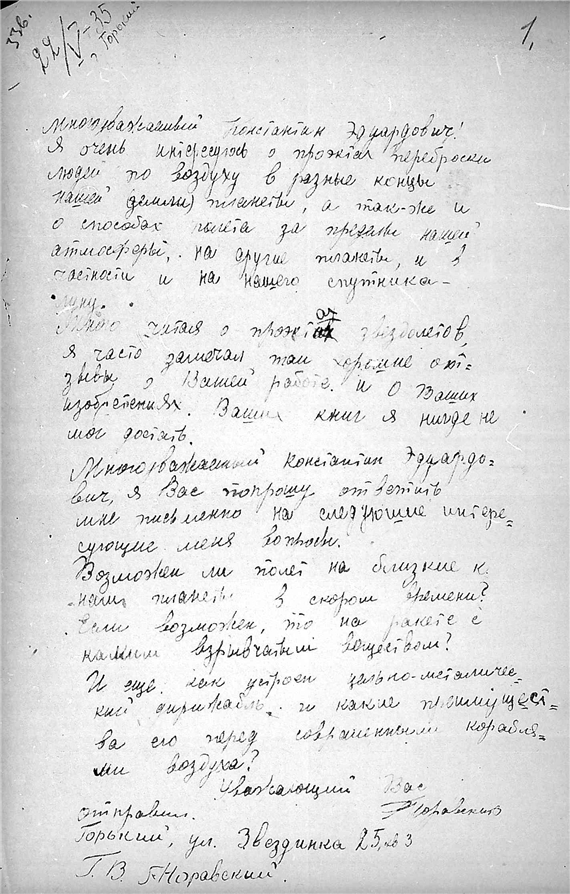 336.
22/V-35
г. Горький
1.
Многоуважаемый Константин Эдуардович!
Я очень интересуюсь о проэктах переброски
людей по воздуху в разные концы
нашей (земли) планеты, а так-же и
о способах полета за пределы нашей
атмосферы, на другие планеты, и в
частности и на нашего спутника-
луну.
Много читая о проэктах звездолетов,
я часто замечал там хорошие от-
зывы о Вашей работе и о Ваших
изобретениях. Ваших книг я нигде не
мог достать.
Многоуважаемый Константин Эдуардо=
вич, я Вас попрошу ответить
мне письменно на следующие интере=
сующие меня вопросы.
Возможен ли полет на близкие к
нам планеты в скором времени?
Если возможен, то на ракете с
каким взрывчатым веществом?
И еще, как устроен цельно-металичес-
кий дирижабль и какие преимущест=
ва его перед современными корабля=
ми воздуха?
Уважающий Вас
отправил.
Горький, ул. Звездинка 25, кв 3
Г. В.